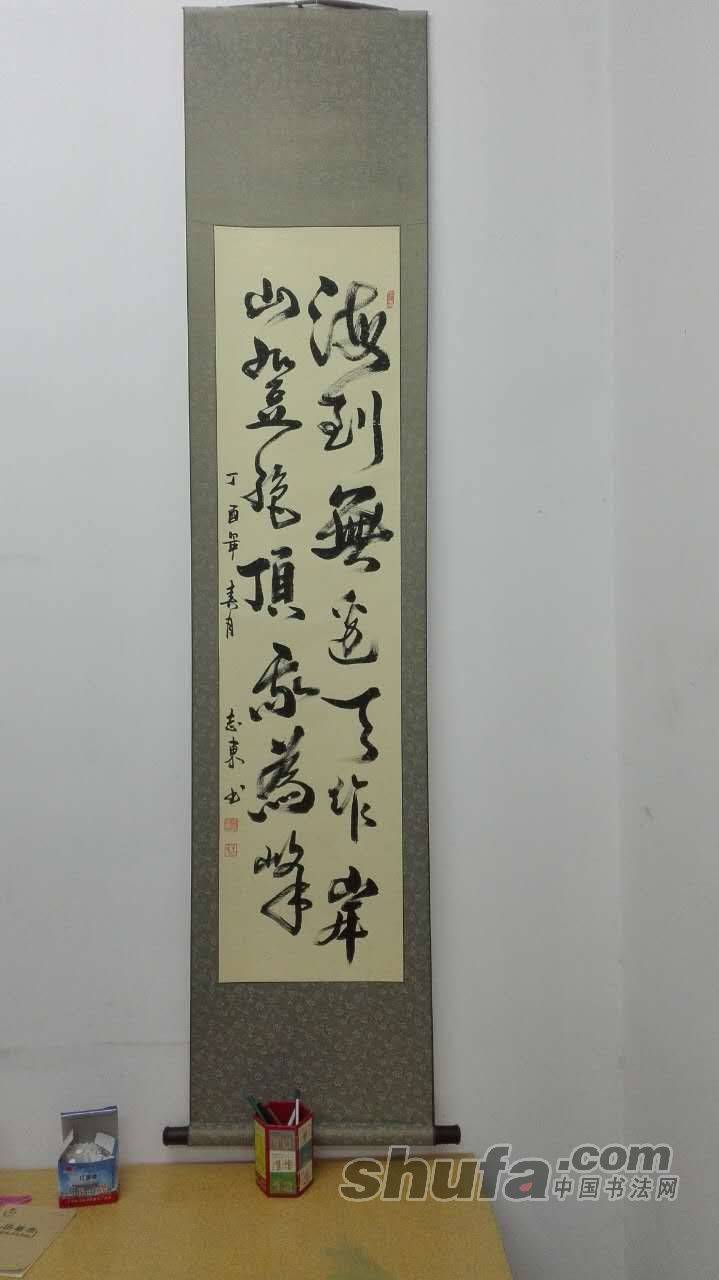 海到無邊天作岸
山登絕頂我為峰
丁酉年春月
志東书
shufa.com
中国书法网